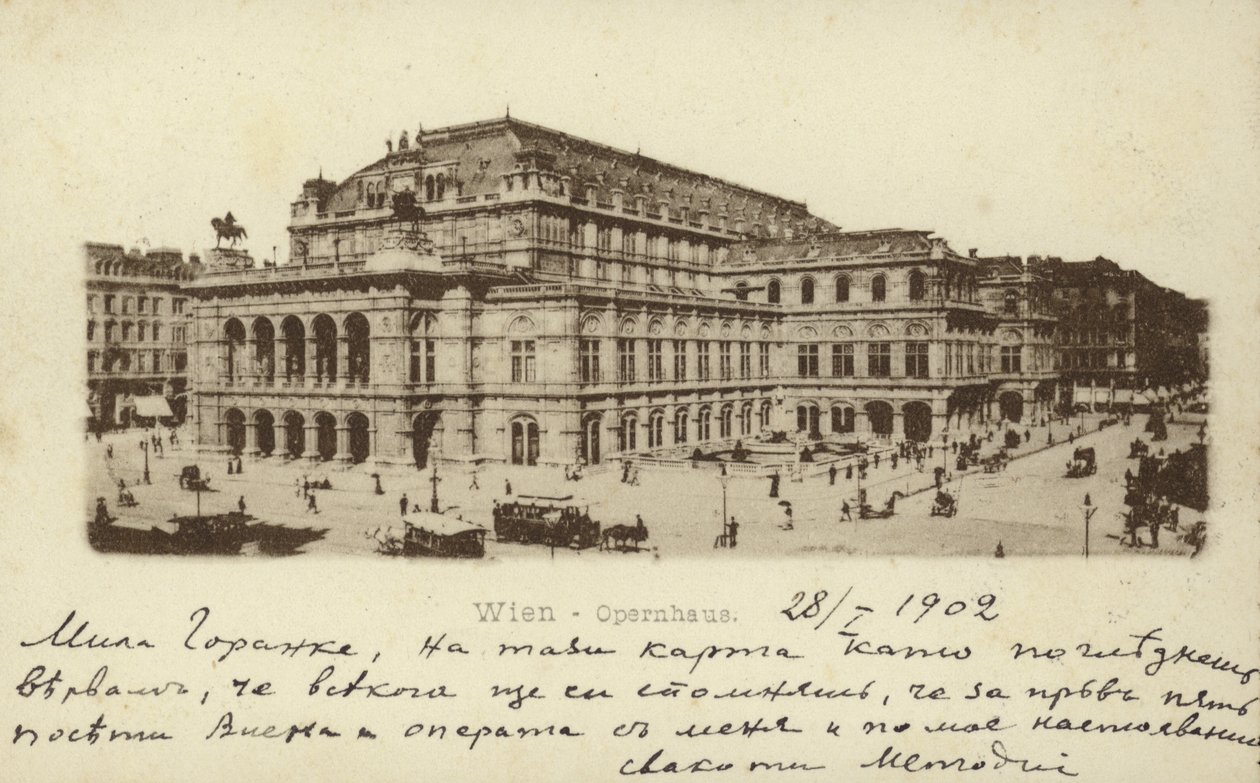 Wien - Opernhaus. 28/I 1902
Мила Горанке, на тази карта като погледнешъ
вѣрвамъ, че всѣкога ще си спомняшъ, че за пръвъ пять
посѣти Виена и операта съ меня и по мое настоявание
свако ти Методий